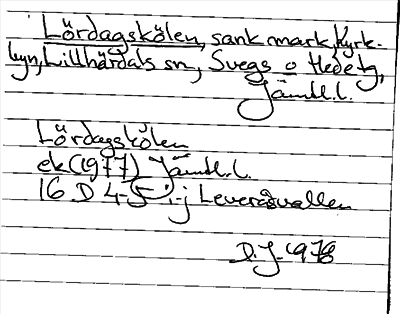 Lördagskölen, sank mark, Kyrk-
byn, Lillhärdals sn, Svegs o Hede tg,
Jämtl. l.
Lördagskölen
ek (1977) Jämtl. l.
16 D 4-5 i-j Leveråsvallen
D. J. 1978